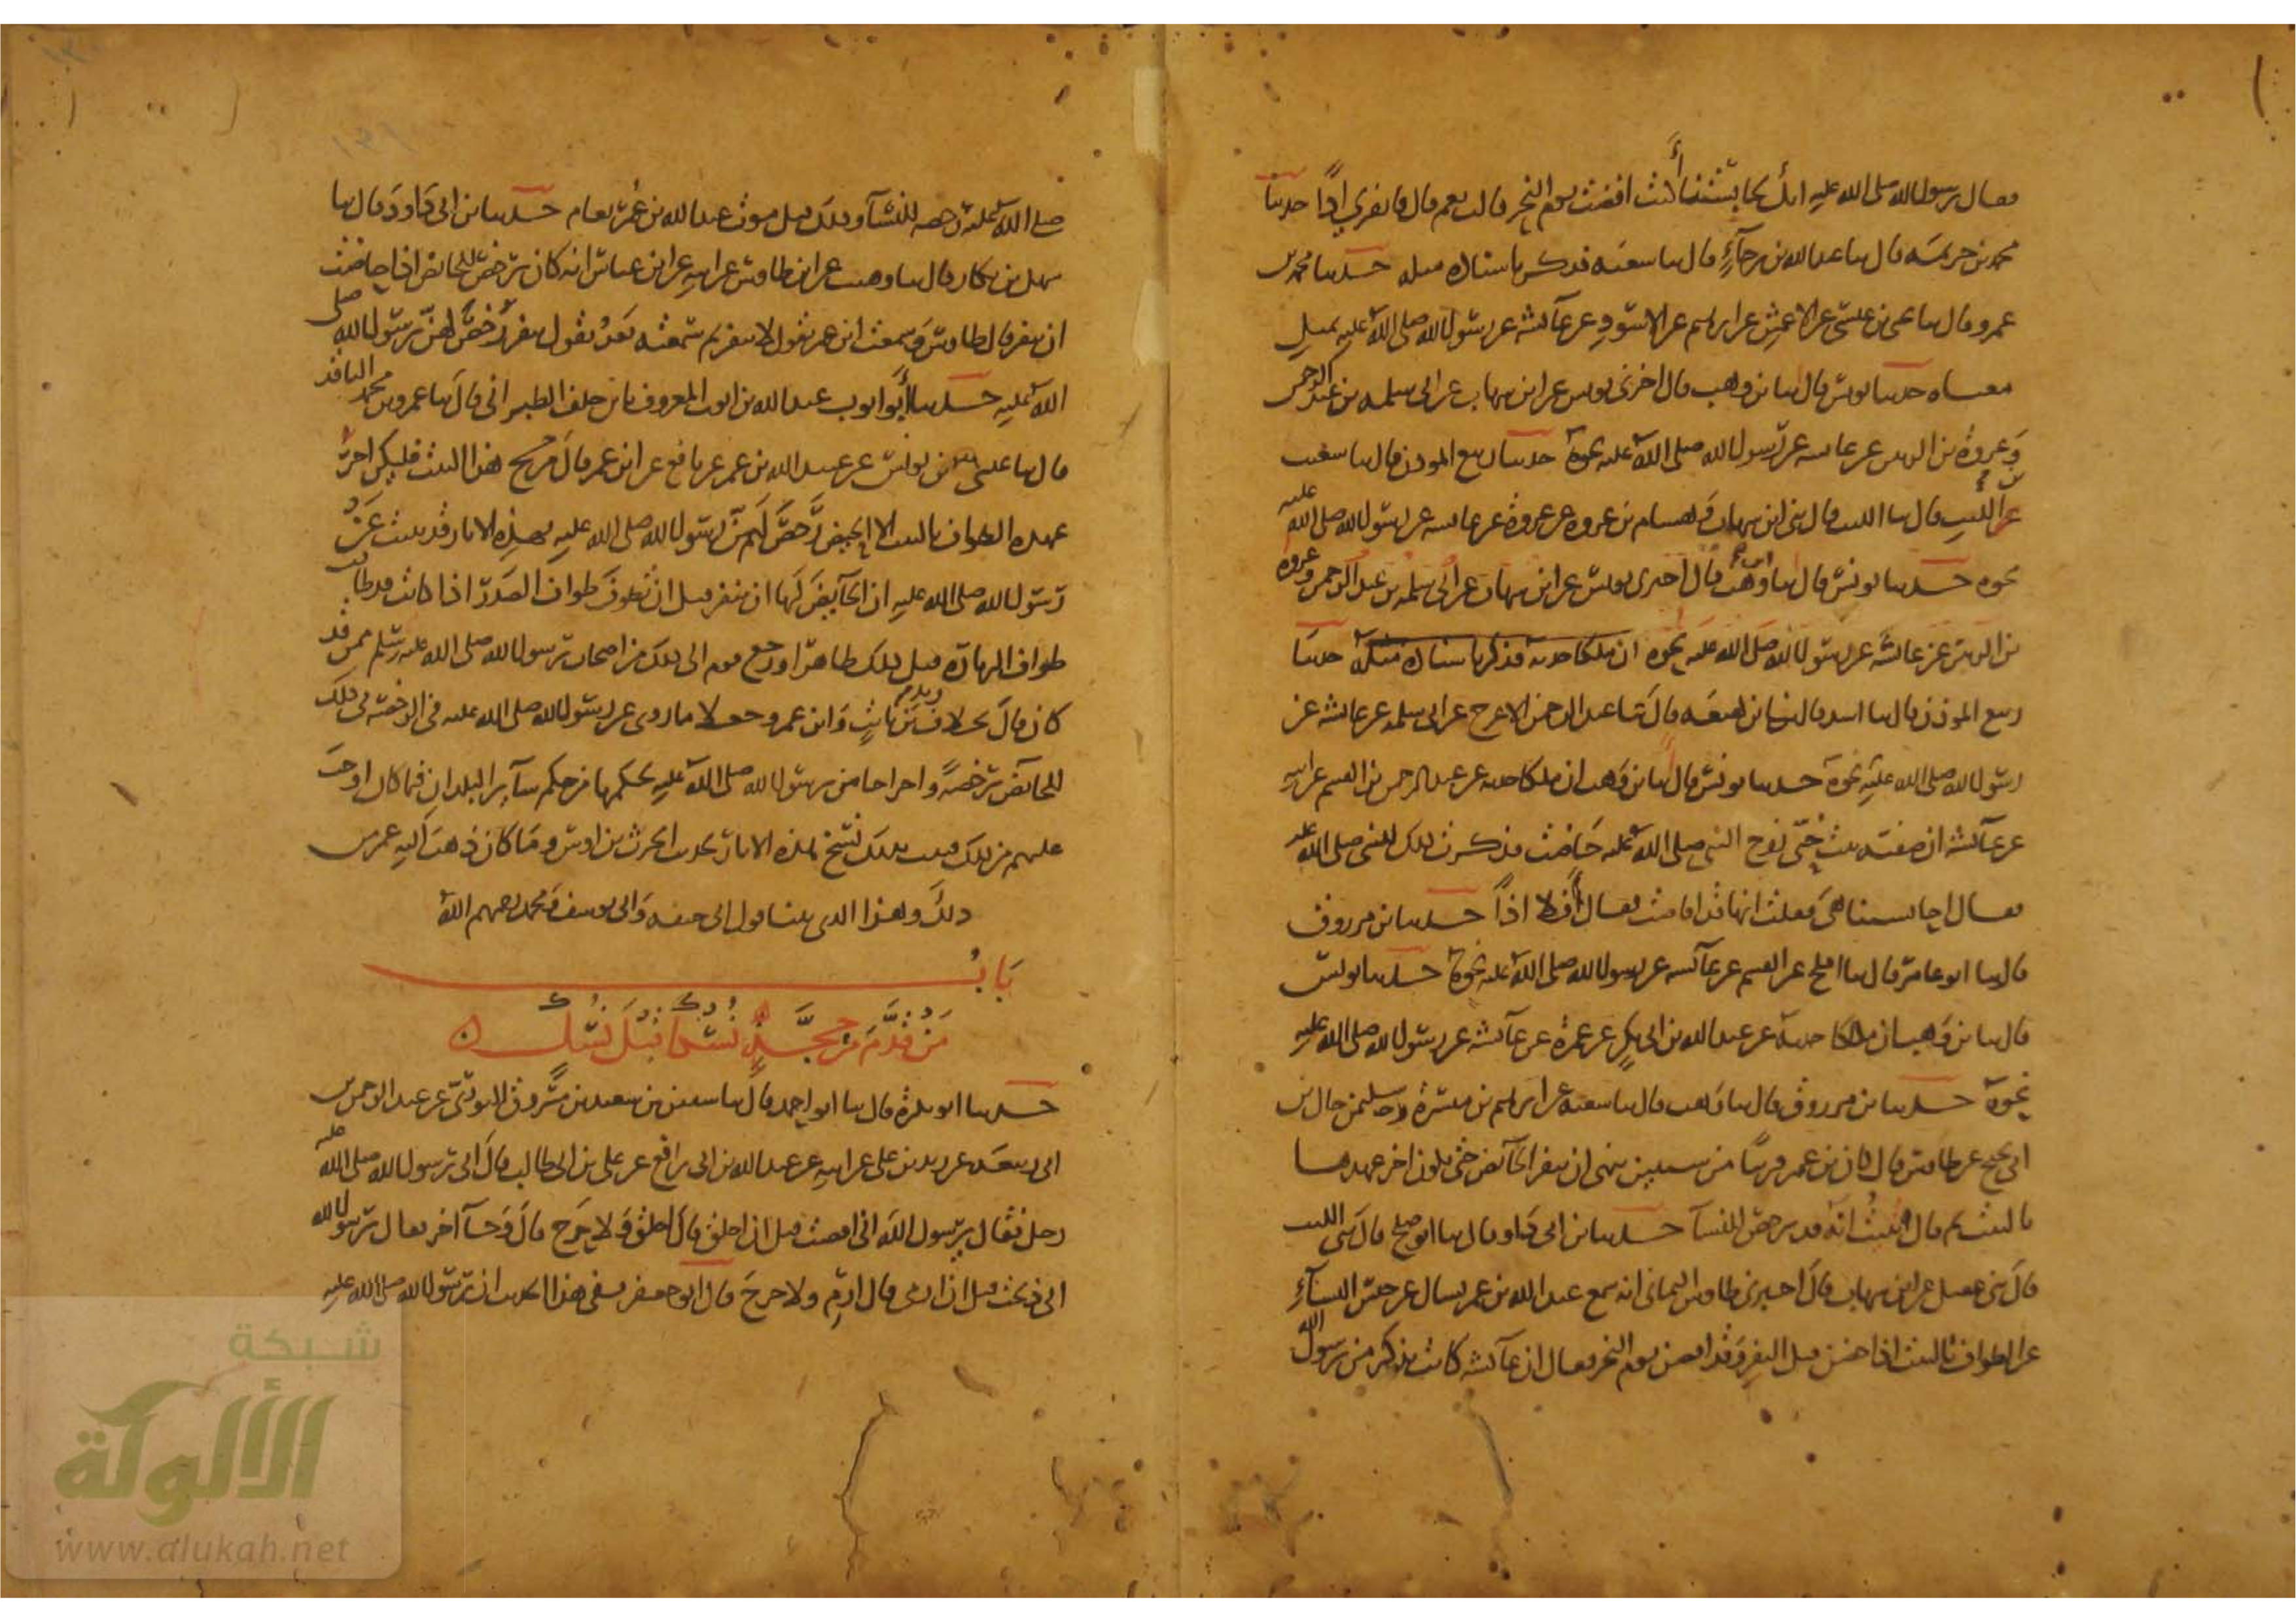 فقال رسول الله صلى الله عليه انك لحابستنا أكنت افضت يوم النحر قالت نعم قال فانفري اذًا حدثنا
محمد بن خزيمة قال ثنا عبد الله بن رجآءٍ قال ثنا شعبة فذكر باسناده مثله حدثنا محمد بن
عمرو قال ثنا يحيى بن عيسى عن الاعمش عن ابراهيم عن الاسود عن عآئشة عن رسول الله صلى الله عليه بمثل
معناه حدثنا يونس قال ثنا بن وهب قال اخبرني يونس عن ابن شهاب عن ابي سلمة بن عبد الرحمن
وعروة بن الزبير عن عائشة عن رسول الله صلى الله عليه نحوه حدثنا ربيع المؤذن قال ثنا شعيب
بن الليث قال ثنا الليث قال ثني ابن شهاب وهشام بن عروة عن عروة عن عائشة عن رسول الله صلى الله عليه
نحوه حدثنا يونس قال ثنا ابن وهب قال اخبرني يونس عن ابن شهاب عن ابي سلمة بن عبد الرحمن وعروة
بن الزبير عن عائشة عن رسول الله صلى الله عليه نحوه ان ملكا حدثه فذكر باسناده مثله حدثنا
ربيع المؤذن قال ثنا اسد قال ثنا بن لهيعة قال ثنا عبد الرحمن الاعرج عن ابي سلمة عن عائشة عن
رسول الله صلى الله عليه نحوه حدثنا يونس قال ثنا بن وهب ان ملكا حدثه عن عبد الرحمن بن القسم عن ابيه
عن عآئشة ان صفية بنت حيي زوج النبي صلى الله عليه حاضت فذكرت ذلك للنبي صلى الله عليه
فقال احابستنا هي فقلت انها قد افاضت فقال فلا اذًا حدثنا بن مرزوق
قال ثنا ابو عامر قال ثنا افلح عن القسم عن عآئشة عن رسول الله صلى الله عليه نحوه حدثنا يونس
قال ثنا بن وهب ان مالكا حدثه عن عبد الله بن ابي بكر عن عمرة عن عآئشة عن رسول الله صلى الله عليه
نحوه حدثنا بن مرزوق قال ثنا وهب قال ثنا شعبة عن ابراهيم بن ميسرة وسليمن خال بن
ابي نجيح عن طاوس قال كان بن عمر قريبًا من سنتين ينهى ان تنفر الحآئض حتى يكون اخر عهدها
بالبيت ثم قال نبئت انه قد رخص للنسآ حدثنا بن ابي داود قال ثنا ابو صلح قال ثني الليث
قال ثني عقيل عن ابن شهاب قال اخبرني طاوس اليماني انه سمع عبد الله بن عمر يسال عن حبس النسآءِ
عن الطواف بالبيت اذا حضن قبل النفر وقد افضن يوم النحر فقال ان عآئشة كانت تذكر من رسول الله
صلى الله عليه رخصه للنسآ وذلك قبل موت عبد الله بن عمر بعام حدثنا بن ابي داود قال ثنا
سهل بن بكار قال ثنا وهيب عن ابن طاوس عن ابيه عن ابن عباس انه كان يرخص للحائض اذا افاضت
ان تنفر قال طاوس وسمعت ابن عمر يقول لا تنفر ثم سمعته بعد يقول تنفر رخص لهن رسول الله صلى
الله عليه حدثنا أبو ايوب عبد الله بن ايوب المعروف بابن خلف الطبراني قال ثنا عمرو بن محمد الناقد
قال ثنا عيسى بن يونس عن عبيد الله بن عمر عن نافع عن ابن عمر قال من حج هذا البيت فليكن اخر
عهده الطواف بالبيت الا الحيض رخص لهن رسول الله صلى الله عليه فهذه الاثار قد ثبتت عن
رسول الله صلى الله عليه ان الحآيض لها ان تنفر قبل ان تطوف طواف الصدر اذا كانت قد طافت
طواف الزيارة قبل ذلك طاهرًا ورجع قوم الى ذلك من اصحاب رسول الله صلى الله عليه وسلم ممن قد
كان قال بخلافه زيد بن ثابت وابن عمر وجعلا ما روى عن رسول الله صلى الله عليه في الرخصة في ذلك
للحائض رخصةً واخراجا من رسول الله صلى الله عليه لحكمها من حكم سآير البلدان فيما كان اوجب
عليهم من ذلك فثبت بذلك نسخ هذه الاثار لحديث الحرث بن اوس وما كان ذهب اليه عمر من
ذلك وهذا الذي بينا قول ابي حنيفه وابي يوسف ومحمد رحمهم الله
بَابُ
مَنْ قدَّم من حجّه نسكًا قبل نسك
حدثنا ابو بكرة قال ثنا ابو احمد قال ثنا سفين بن سعيد بن مسروق الثوري عن عبد الرحمن بن
ابي ربيعة عن زيد بن علي عن ابيه عن عبيد الله بن ابي رافع عن علي بن ابي طالب قال اتى رسول الله صلى الله عليه
رجل فقال يرسول الله اني افضت قبل ان احلق قال احلق ولا حرج قال وجآ اخر فقال يرسول الله
اني ذبحت قبل ان ارمي قال ارم ولا حرج قال ابو جعفر ففي هذا الحديث ان رسول الله صلى الله عليه
شبكة
الألوكة
www.alukah.net